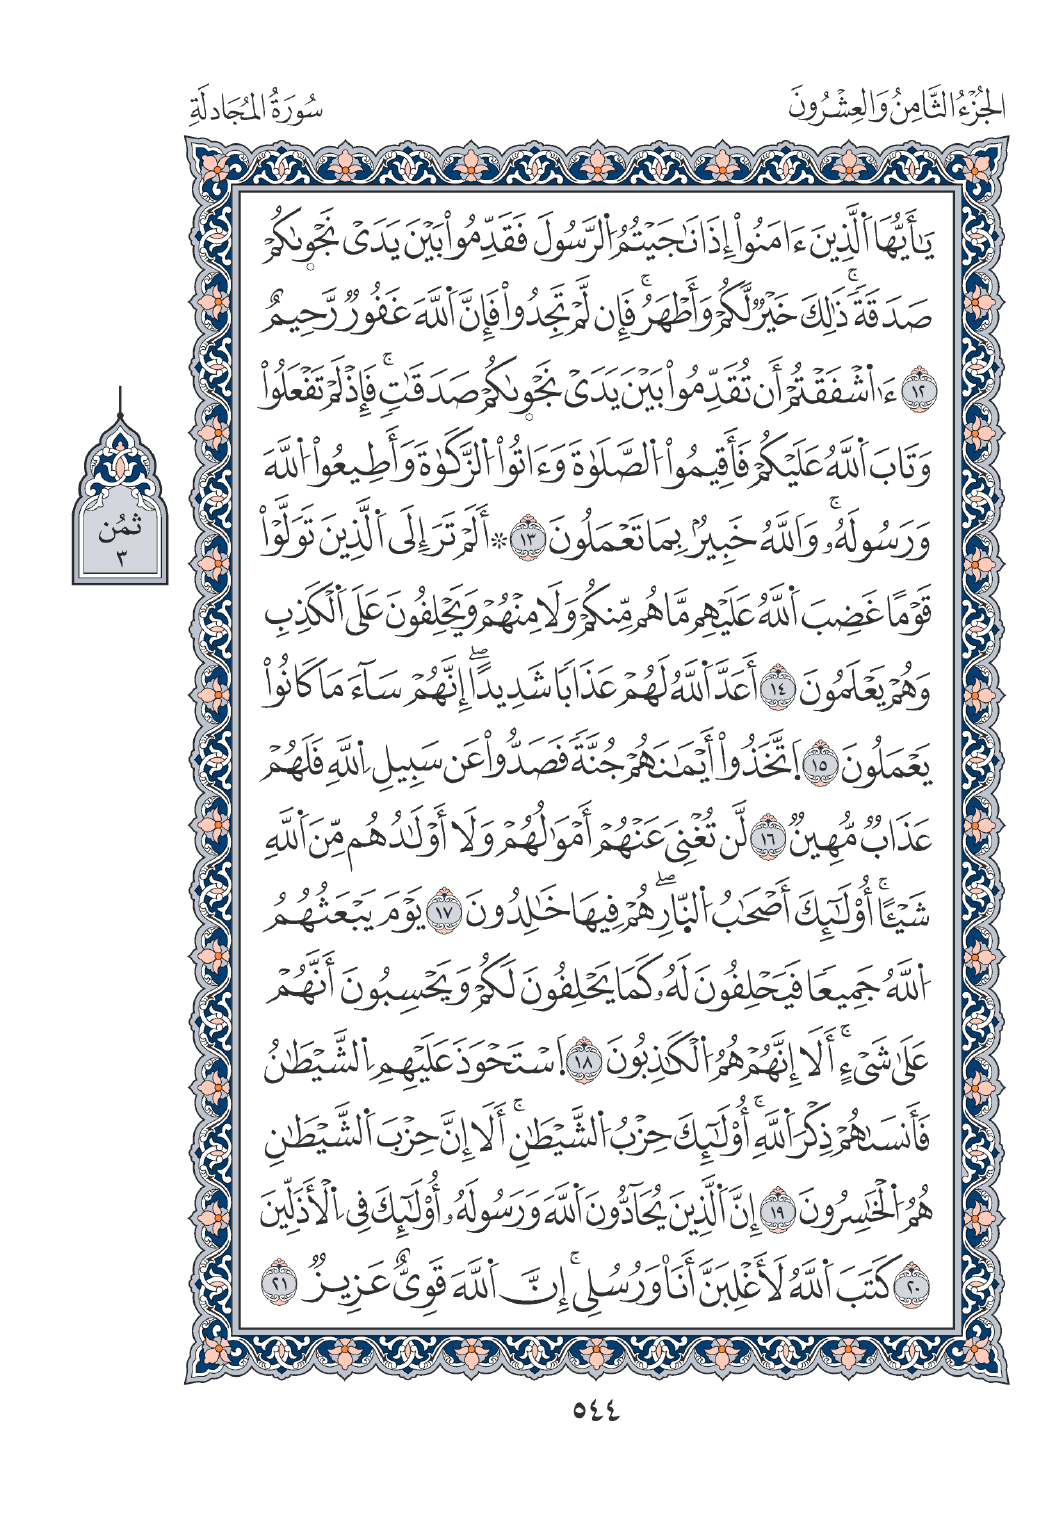 الجُزْءُ الثَّامِنُ وَالعِشْرُونَ
سُورَةُ المُجَادلَةِ
يَٰٓأَيُّهَا اَ۬لَّذِينَ ءَامَنُوٓاْ إِذَا نَٰجَيْتُمُ اُ۬لرَّسُولَ فَقَدِّمُواْ بَيْنَ يَدَىْ نَجْو۪ىٰكُمْ
صَدَقَةٗۖ ذَٰلِكَ خَيْرٞ لَّكُمْ وَأَطْهَرُۚ فَإِن لَّمْ تَجِدُواْ فَإِنَّ اَ۬للَّهَ غَفُورٞ رَّحِيمٌ
١٢ ءَا۬شْفَقْتُمْ أَن تُقَدِّمُواْ بَيْنَ يَدَىْ نَجْو۪ىٰكُمْ صَدَقَٰتٖۚ فَإِذْ لَمْ تَفْعَلُواْ
وَتَابَ اَ۬للَّهُ عَلَيْكُمْ فَأَقِيمُواْ اُ۬لصَّلَوٰةَ وَءَاتُواْ اُ۬لزَّكَوٰةَ وَأَطِيعُواْ اُ۬للَّهَ
وَرَسُولَهُۥۚ وَاَ۬للَّهُ خَبِيرُۢ بِمَا تَعْمَلُونَ ١٣ ۞ أَلَمْ تَرَ إِلَى اَ۬لَّذِينَ تَوَلَّوْاْ
قَوْمًا غَضِبَ اَ۬للَّهُ عَلَيْهِم مَّا هُم مِّنكُمْ وَلَا مِنْهُمْ وَيَحْلِفُونَ عَلَى اَ۬لْكَذِبِ
وَهُمْ يَعْلَمُونَ ١٤ أَعَدَّ اَ۬للَّهُ لَهُمْ عَذَابٗا شَدِيدًاۖ إِنَّهُمْ سَآءَ مَا كَانُواْ
يَعْمَلُونَ ١٥ اَ۪تَّخَذُوٓاْ أَيْمَٰنَهُمْ جُنَّةٗ فَصَدُّواْ عَن سَبِيلِ اِ۬للَّهِ فَلَهُمْ
عَذَابٞ مُّهِينٞ ١٦ لَّن تُغْنِىَ عَنْهُمْ أَمْوَٰلُهُمْ وَلَآ أَوْلَٰدُهُم مِّنَ اَ۬للَّهِ
شَيْـًٔاۚ أُوْلَٰٓئِكَ أَصْحَٰبُ اُ۬لنّ۪ارِۖ هُمْ فِيهَا خَٰلِدُونَ ١٧ يَوْمَ يَبْعَثُهُمُ
اُ۬للَّهُ جَمِيعٗا فَيَحْلِفُونَ لَهُۥ كَمَا يَحْلِفُونَ لَكُمْ وَيَحْسِبُونَ أَنَّهُمْ
عَلَىٰ شَىْءٍۚ أَلَآ إِنَّهُمْ هُمُ اُ۬لْكَٰذِبُونَ ١٨ اَ۪سْتَحْوَذَ عَلَيْهِمِ اِ۬لشَّيْطَٰنُ
فَأَنسَىٰهُمْ ذِكْرَ اَ۬للَّهِۚ أُوْلَٰٓئِكَ حِزْبُ اُ۬لشَّيْطَٰنِۚ أَلَآ إِنَّ حِزْبَ اَ۬لشَّيْطَٰنِ
هُمُ اُ۬لْخَٰسِرُونَ ١٩ إِنَّ اَ۬لَّذِينَ يُحَآدُّونَ اَ۬للَّهَ وَرَسُولَهُۥٓ أُوْلَٰٓئِكَ فِى اِ۬لْأَذَلِّينَ
٢٠ كَتَبَ اَ۬للَّهُ لَأَغْلِبَنَّ أَنَا۠ وَرُسُلِىٓۚ إِنَّ اَ۬للَّهَ قَوِىٌّ عَزِيزٞ ٢١
ثمُن
٣
٥٤٤